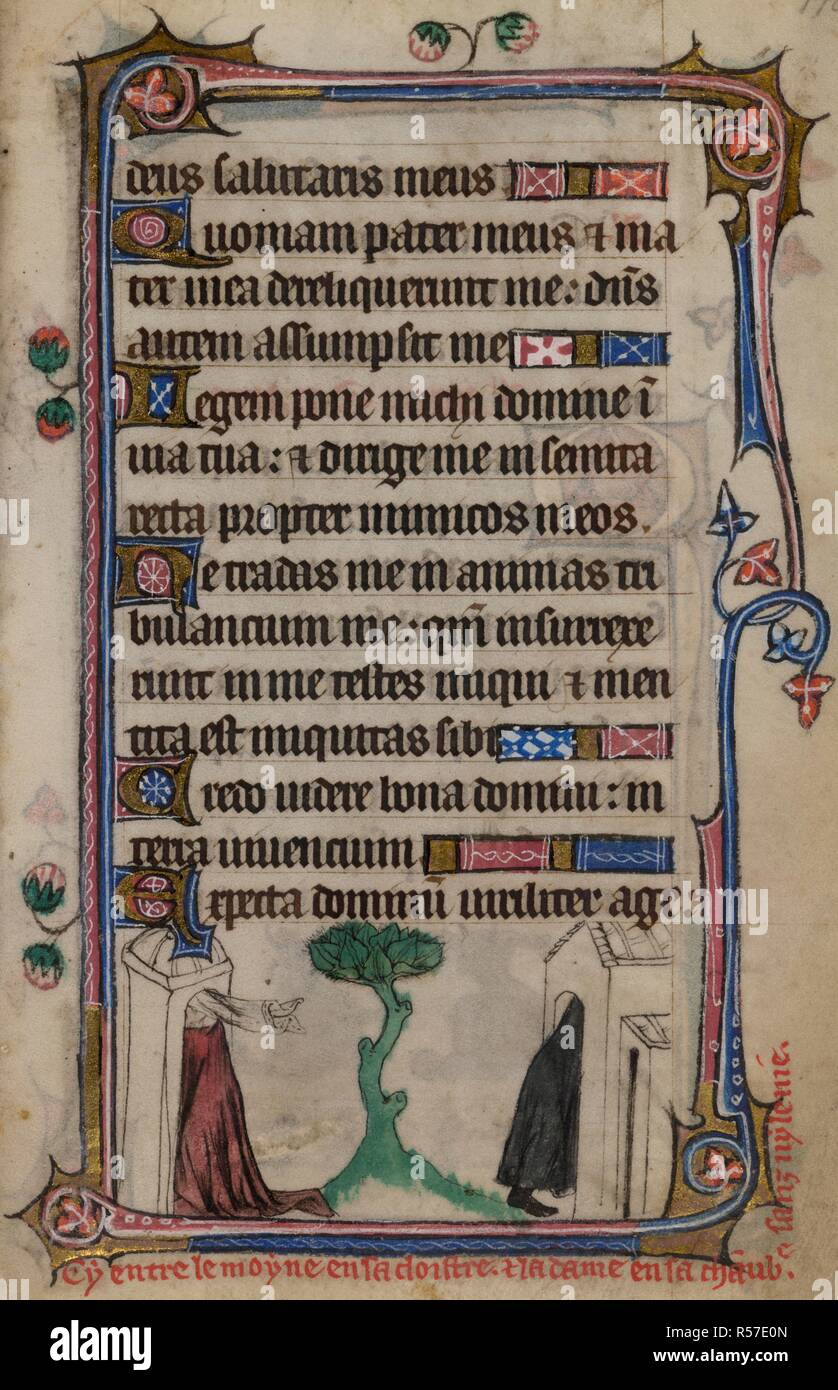 deus salutaris meus
Quoniam pater meus ⁊ ma
ter mea dereliquerunt me: dn̄s
autem assumpsit me
Legem pone michi domine ī
uia tua: ⁊ dirige me in semita
recta propter inimicos meos.
Ne tradas me in animas tri
bulantium me: qm̄ insurrexe
runt in me testes iniqui ⁊ men
tita est iniquitas sibi
Credo uidere bona domini: in
terra uiuencium
Expecta dominū uiriliter age
Cy entre le moyne en sa cloistre. ⁊ la dame en sa chāub
sanz
alamy
Image ID: R57E0N
www.alamy.com